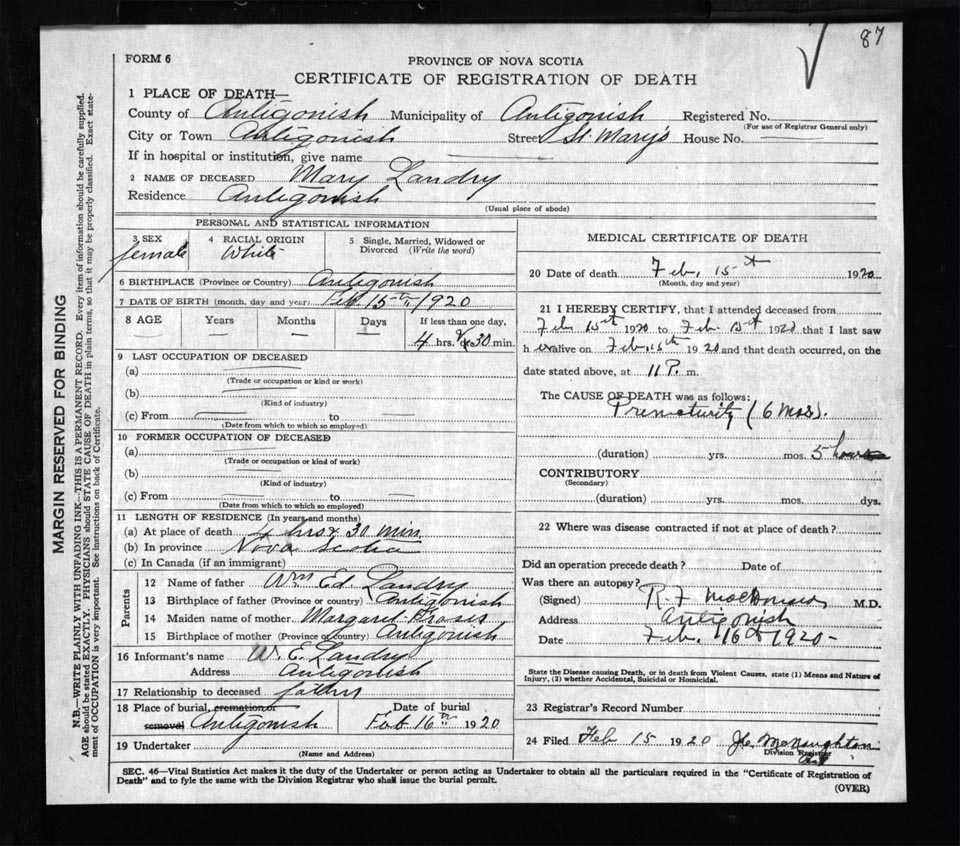 87
FORM 6
PROVINCE OF NOVA SCOTIA
CERTIFICATE OF REGISTRATION OF DEATH
1 PLACE OF DEATH—
County of Antigonish Municipality of Antigonish Registered No.
(For use of Registrar General only)
City or Town Antigonish Street St. Mary's House No.
If in hospital or institution, give name
2 NAME OF DECEASED Mary Landry
Residence Antigonish
(Usual place of abode)
PERSONAL AND STATISTICAL INFORMATION
3 SEX female
4 RACIAL ORIGIN White
5 Single, Married, Widowed or Divorced (Write the word)
6 BIRTHPLACE (Province or Country) Antigonish
7 DATE OF BIRTH (month, day and year) Feb. 15th, 1920
8 AGE Years Months Days If less than one day,
4 hrs. & 30 min.
9 LAST OCCUPATION OF DECEASED
(a)
(Trade or occupation or kind or work)
(b)
(Kind of industry)
(c) From to
(Date from which to which so employed)
10 FORMER OCCUPATION OF DECEASED
(a)
(Trade or occupation or kind of work)
(b)
(Kind of industry)
(c) From to
(Date from which to which so employed)
11 LENGTH OF RESIDENCE (In years and months)
(a) At place of death 4 hrs & 30 min.
(b) In province Nova Scotia
(c) In Canada (if an immigrant)
Parents
12 Name of father Wm Ed Landry
13 Birthplace of father (Province or country) Antigonish
14 Maiden name of mother Margaret
15 Birthplace of mother (Province or country) Antigonish
16 Informant's name W. E. Landry
Address Antigonish
17 Relationship to deceased father
18 Place of burial, cremation or Date of burial
removal Antigonish Feb 16th 1920
19 Undertaker
(Name and Address)
MEDICAL CERTIFICATE OF DEATH
20 Date of death Feb. 15th 1920
(Month, day and year)
21 I HEREBY CERTIFY, that I attended deceased from
Feb 15th 1920 to Feb. 15th 1920 that I last saw
her alive on Feb. 15th 1920 and that death occurred, on the
date stated above, at 11 P. m.
The CAUSE OF DEATH was as follows:
Prematurity (6 mos).
(duration) yrs. mos. 5 hours
CONTRIBUTORY
(Secondary)
(duration) yrs. mos. dys.
22 Where was disease contracted if not at place of death?
Did an operation precede death? Date of
Was there an autopsy?
(Signed) R. F. MacDonald M.D.
Address Antigonish
Date Feb. 16th 1920-
State the Disease causing Death, or in death from Violent Causes, state (1) Means and Nature of
Injury, (2) whether Accidental, Suicidal or Homicidal.
23 Registrar's Record Number
24 Filed Feb 15 1920 McNaughton
Division Registrar
SEC. 46—Vital Statistics Act makes it the duty of the Undertaker or person acting as Undertaker to obtain all the particulars required in the "Certificate of Registration of
Death" and to fyle the same with the Division Registrar who shall issue the burial permit.
(OVER)
MARGIN RESERVED FOR BINDING
N.B.—WRITE PLAINLY WITH UNFADING INK—THIS IS A PERMANENT RECORD. Every item of information should be carefully supplied.
AGE should be stated EXACTLY. PHYSICIANS should STATE CAUSE OF DEATH in plain terms, so that it may be properly classified. Exact state-
ment of OCCUPATION is very important. See instructions on back of Certificate.